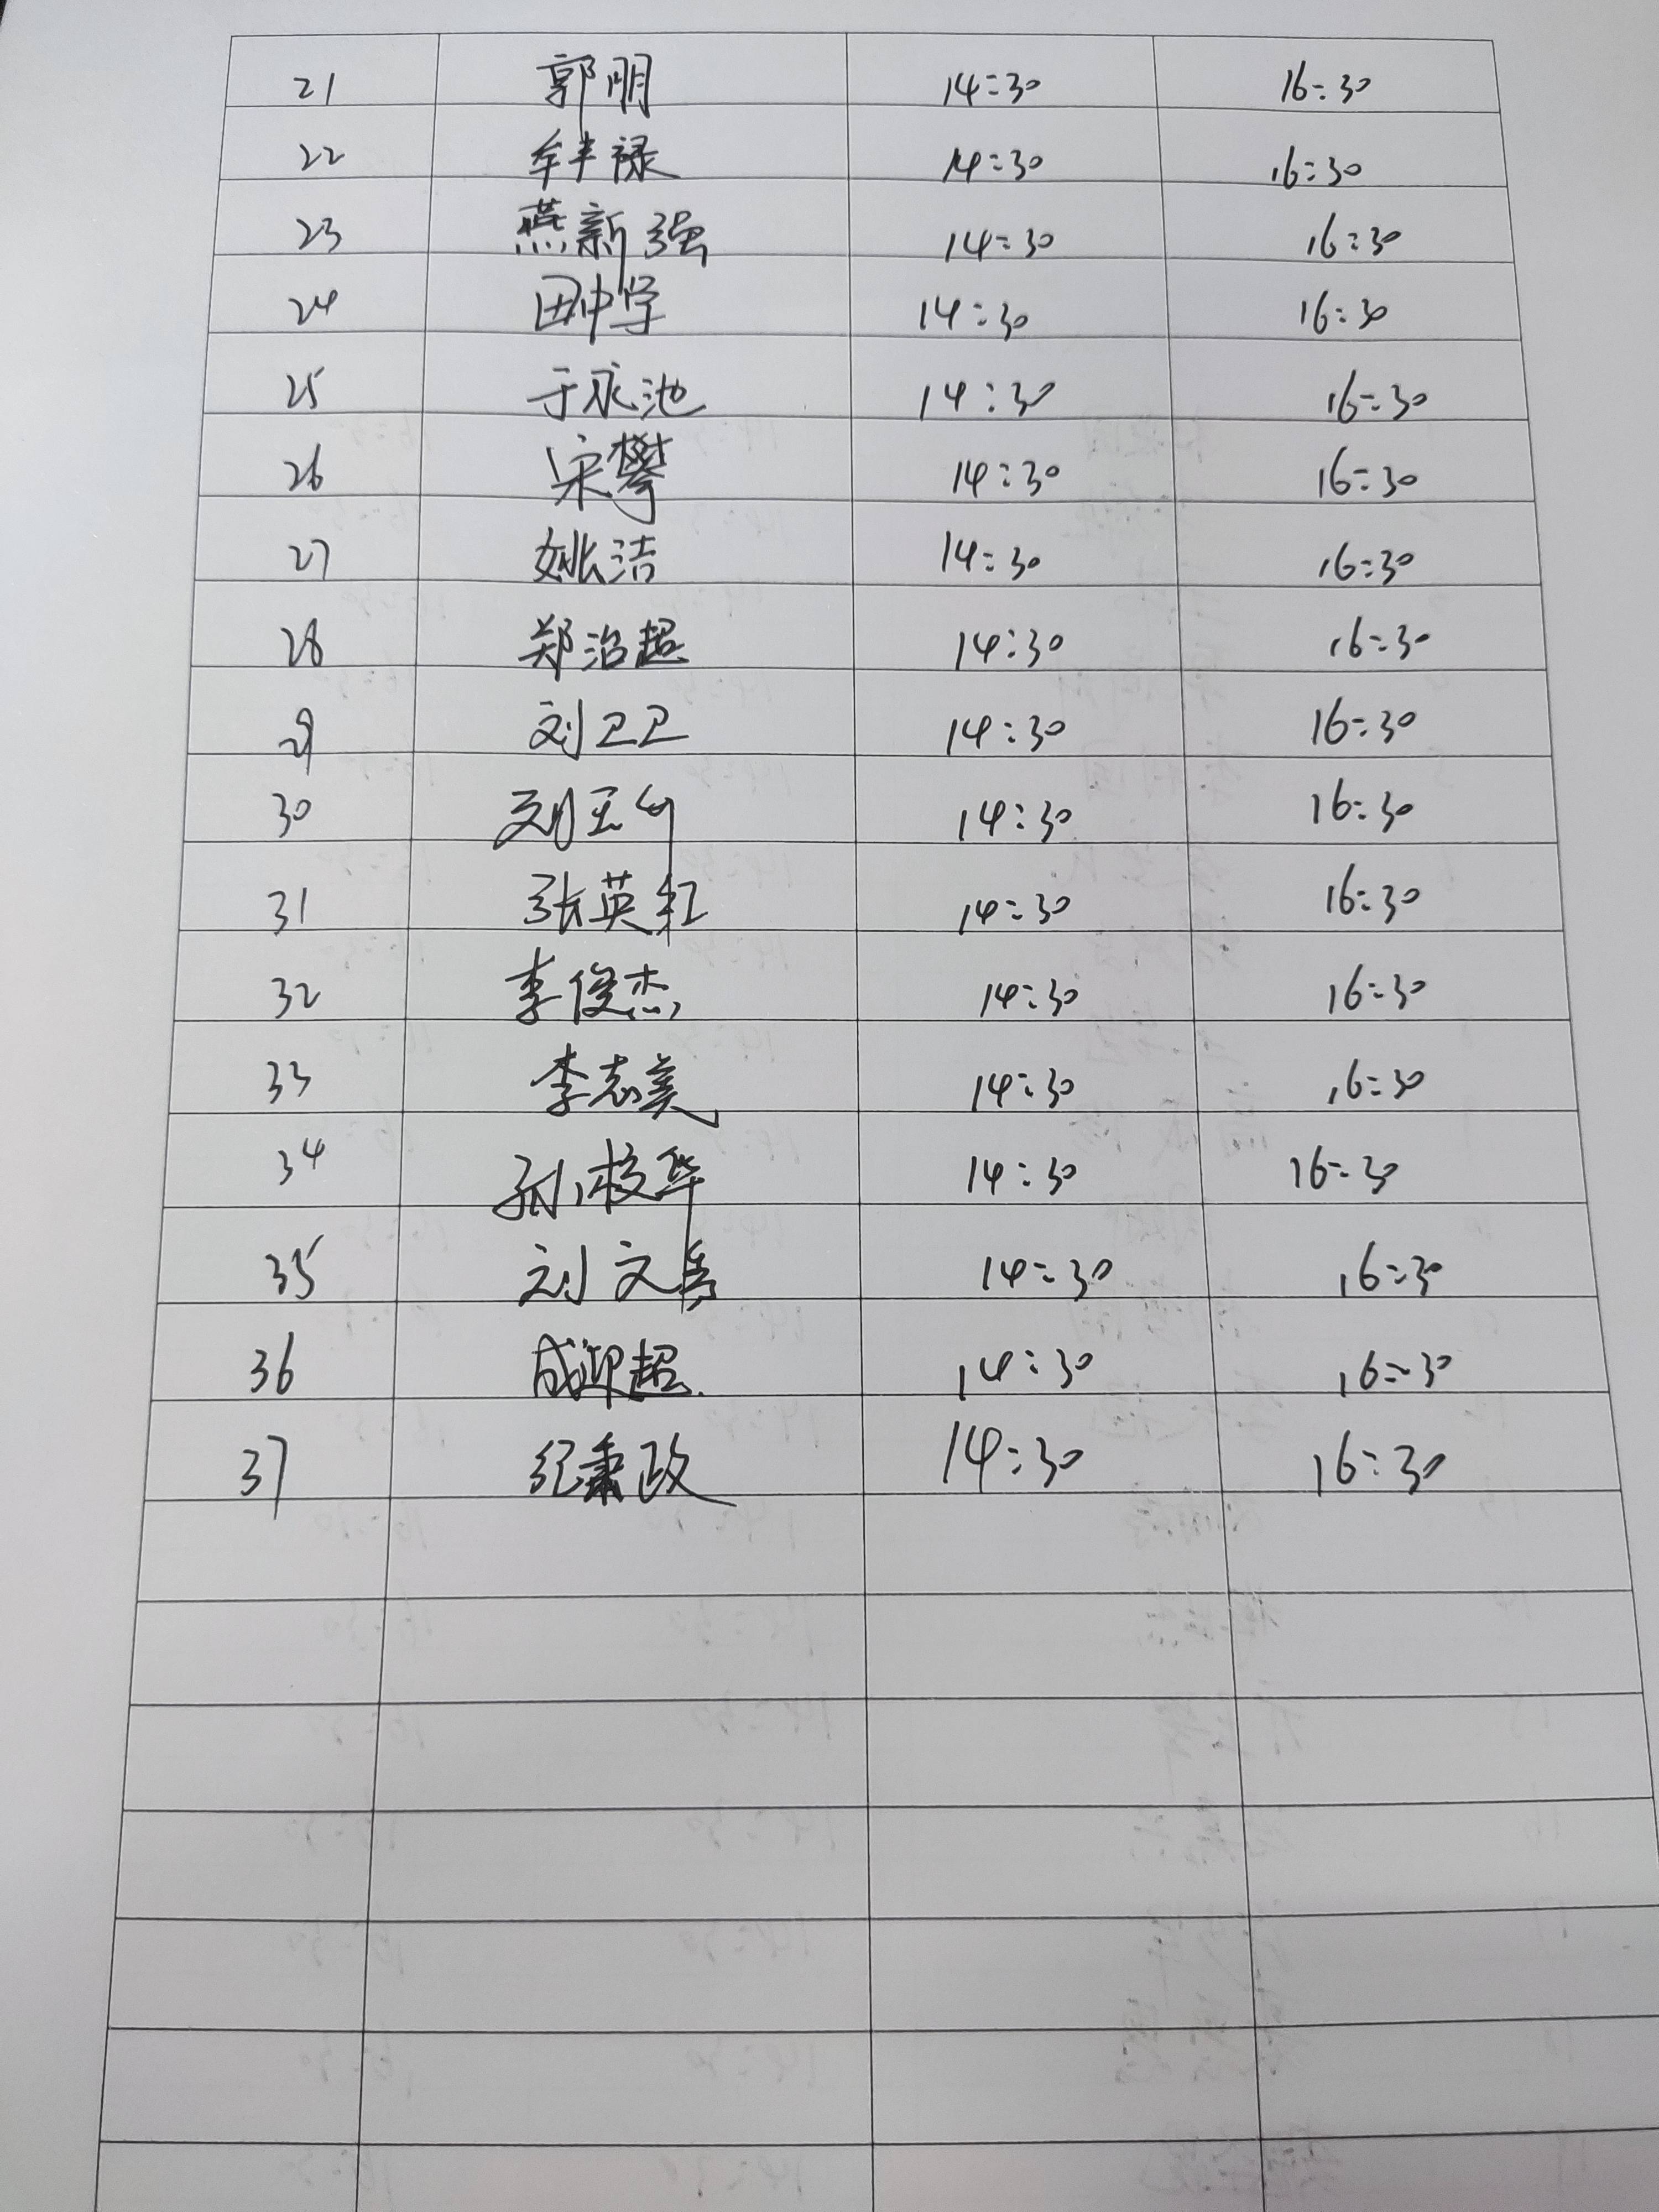 21 郭明 14:30 16:30
22 牟丰禄 14:30 16:30
23 燕新强 14:30 16:30
24 田中学 14:30 16:30
25 于永池 14:30 16:30
26 宋攀 14:30 16:30
27 姚洁 14:30 16:30
28 郑治超 14:30 16:30
29 刘卫卫 14:30 16:30
30 刘玉 14:30 16:30
31 张英红 14:30 16:30
32 李俊杰 14:30 16:30
33 李志美 14:30 16:30
34 孙校华 14:30 16:30
35 刘文 14:30 16:30
36 成迎超 14:30 16:30
37 纪肃政 14:30 16:30